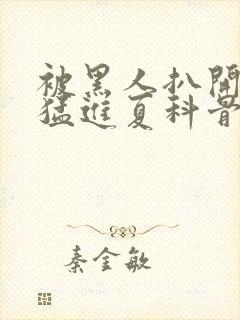 被黑人扒開
猛進夏科骨
秦金敏